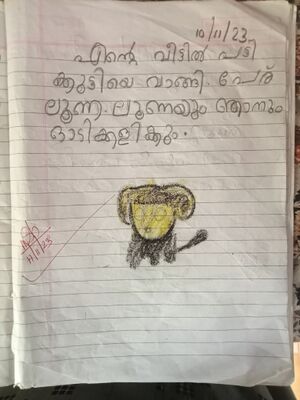 10/11/23
എന്റെ വീട്ടിൽ പട്ടി
ക്കുട്ടിയെ വാങ്ങി. പേര്
ലൂണ. ലൂണയും ഞാനും
ഓടികളിക്കും.
11/11/23